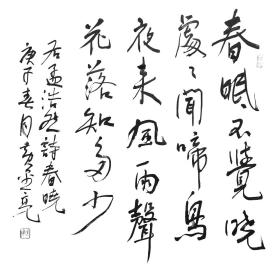 春眠不覺曉
處々聞啼鳥
夜来風雨聲
花落知多少
孟浩然詩春曉
庚子春月